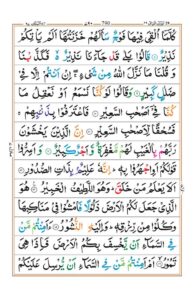 كُلَّمَآ اُلْقِيَ فِيْهَا فَوْجٌ سَاَلَهُمْ خَزَنَتُهَآ اَلَمْ يَاْتِكُمْ
نَذِيْرٌ قَالُوْا بَلٰى قَدْ جَآءَنَا نَذِيْرٌ فَكَذَّبْنَا
وَقُلْنَا مَا نَزَّلَ اللّٰهُ مِنْ شَيْءٍ اِنْ اَنْتُمْ اِلَّا فِيْ
ضَلٰلٍ كَبِيْرٍ وَقَالُوْا لَوْ كُنَّا نَسْمَعُ اَوْ نَعْقِلُ مَا
كُنَّا فِيْٓ اَصْحٰبِ السَّعِيْرِ فَاعْتَرَفُوْا بِذَنْۢبِهِمْ
فَسُحْقًا لِّاَصْحٰبِ السَّعِيْرِ اِنَّ الَّذِيْنَ يَخْشَوْنَ
رَبَّهُمْ بِالْغَيْبِ لَهُمْ مَّغْفِرَةٌ وَّاَجْرٌ كَبِيْرٌ وَاَسِرُّوْا
قَوْلَكُمْ اَوِ اجْهَرُوْا بِهٖ اِنَّهٗ عَلِيْمٌۢ بِذَاتِ الصُّدُوْرِ
اَلَا يَعْلَمُ مَنْ خَلَقَ وَهُوَ اللَّطِيْفُ الْخَبِيْرُ هُوَ
الَّذِيْ جَعَلَ لَكُمُ الْاَرْضَ ذَلُوْلًا فَامْشُوْا فِيْ مَنَاكِبِهَا
وَكُلُوْا مِنْ رِّزْقِهٖ وَاِلَيْهِ النُّشُوْرُ ءَاَمِنْتُمْ مَّنْ
فِي السَّمَآءِ اَنْ يَّخْسِفَ بِكُمُ الْاَرْضَ فَاِذَا هِيَ
تَمُوْرُ اَمْ اَمِنْتُمْ مَّنْ فِي السَّمَآءِ اَنْ يُّرْسِلَ عَلَيْكُمْ